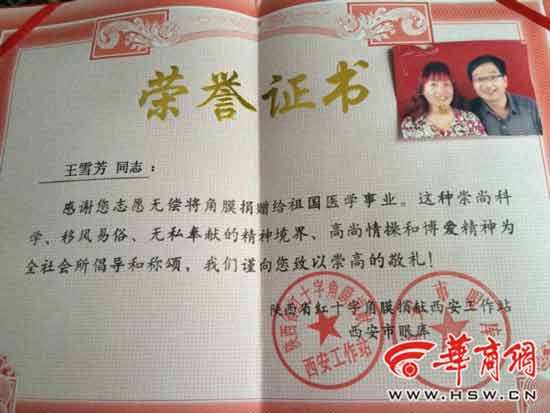 荣誉证书
王雪芳 同志：
感谢您志愿无偿将角膜捐赠给祖国医学事业。这种崇尚科
学、移风易俗、无私奉献的精神境界、高尚情操和博爱精神为
全社会所倡导和称颂，我们谨向您致以崇高的敬礼！
陕西省红十字角膜捐献西安工作站
西安市眼库
西安工作站
华商网
WWW.HSW.CN